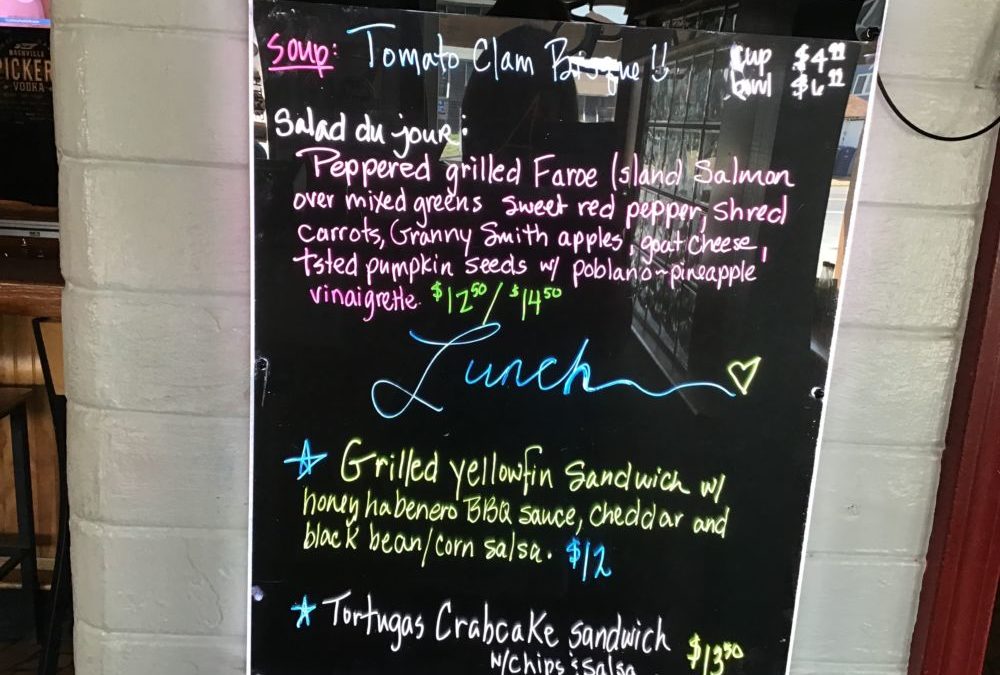 NASHVILLE
PICKER
VODKA
Soup: Tomato Clam Bisque!! Cup $4.99
bowl $6.99
Salad du jour:
Peppered grilled Faroe Island Salmon
over mixed greens sweet red pepper, shred
carrots, Granny Smith apples, goat cheese,
tsted pumpkin seeds w/ poblano-pineapple
vinaigrette $12.50/$14.50
Lunch
Grilled yellowfin Sandwich w/
honey habenero BBQ sauce, cheddar and
black bean/corn salsa. $12
Tortugas Crabcake sandwich $13.50
w/chips & salsa